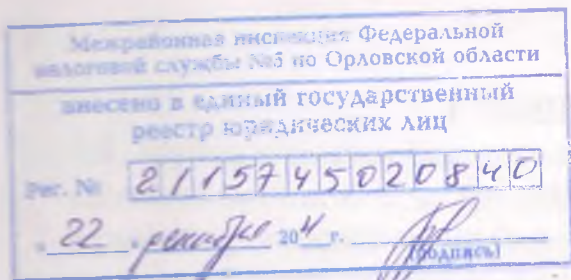 Межрайонная инспекция Федеральной
налоговой службы №5 по Орловской области
внесено в единый государственный
реестр юридических лиц
Рег. № 2115745020840
« 22 » декабря 20 г.
(подпись)